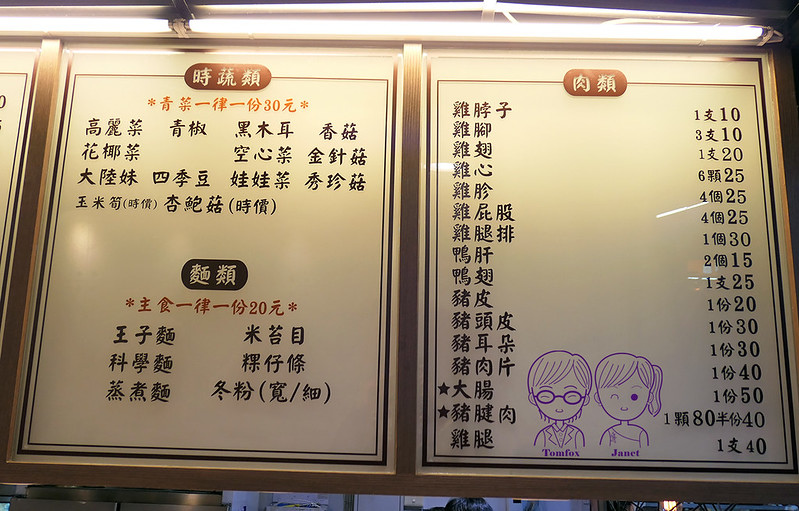 時蔬類
*青菜一律一份30元*
高麗菜 青椒 黑木耳 香菇
花椰菜 空心菜 金針菇
大陸妹 四季豆 娃娃菜 秀珍菇
玉米筍(時價) 杏鮑菇(時價)
麵類
*主食一律一份20元*
王子麵 米苔目
科學麵 粿仔條
蒸煮麵 冬粉(寬/細)
肉類
雞脖子 1支10
雞腳 3支10
雞翅 1支20
雞心 6顆25
雞胗 4個25
雞屁股 4個25
雞腿排 1個30
鴨肝 2個15
鴨翅 1支25
豬皮 1份20
豬頭皮 1份30
豬耳朵 1份30
豬肉片 1份40
★大腸 1份50
★豬腱肉 1顆80半份40
雞腿 1支40
Tomfox Janet